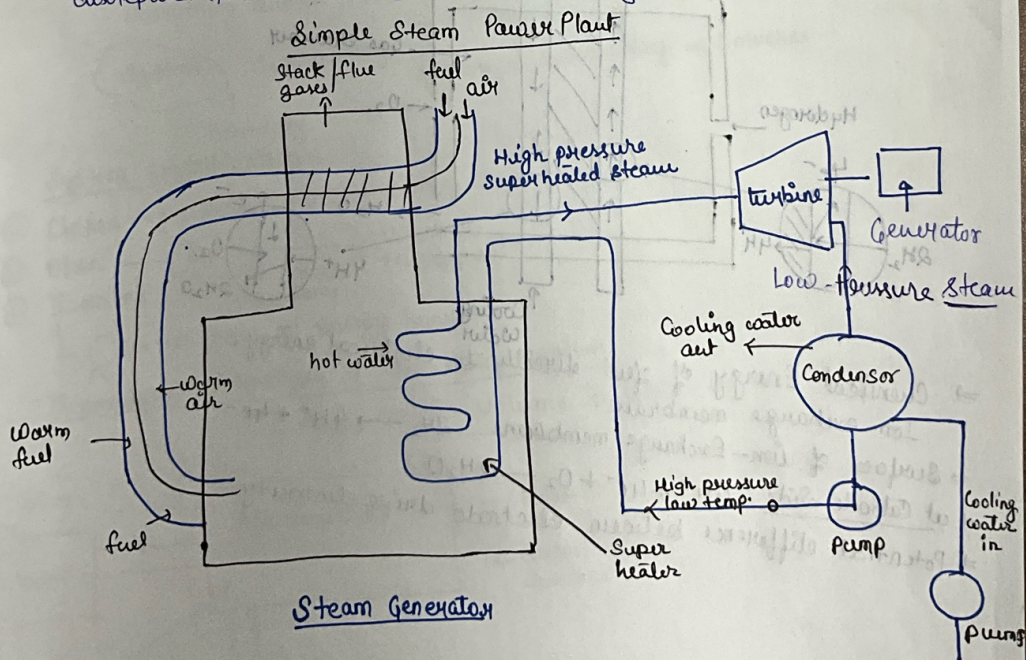 Simple Steam Power Plant
Stack/flue
gases
fuel
air
High pressure
superheated steam
turbine
Generator
Low-Pressure Steam
Cooling water
out
Condensor
hot water
warm
air
warm
fuel
fuel
High pressure
low temp.
Pump
Cooling
water
in
Pump
Super
heater
Steam Generator